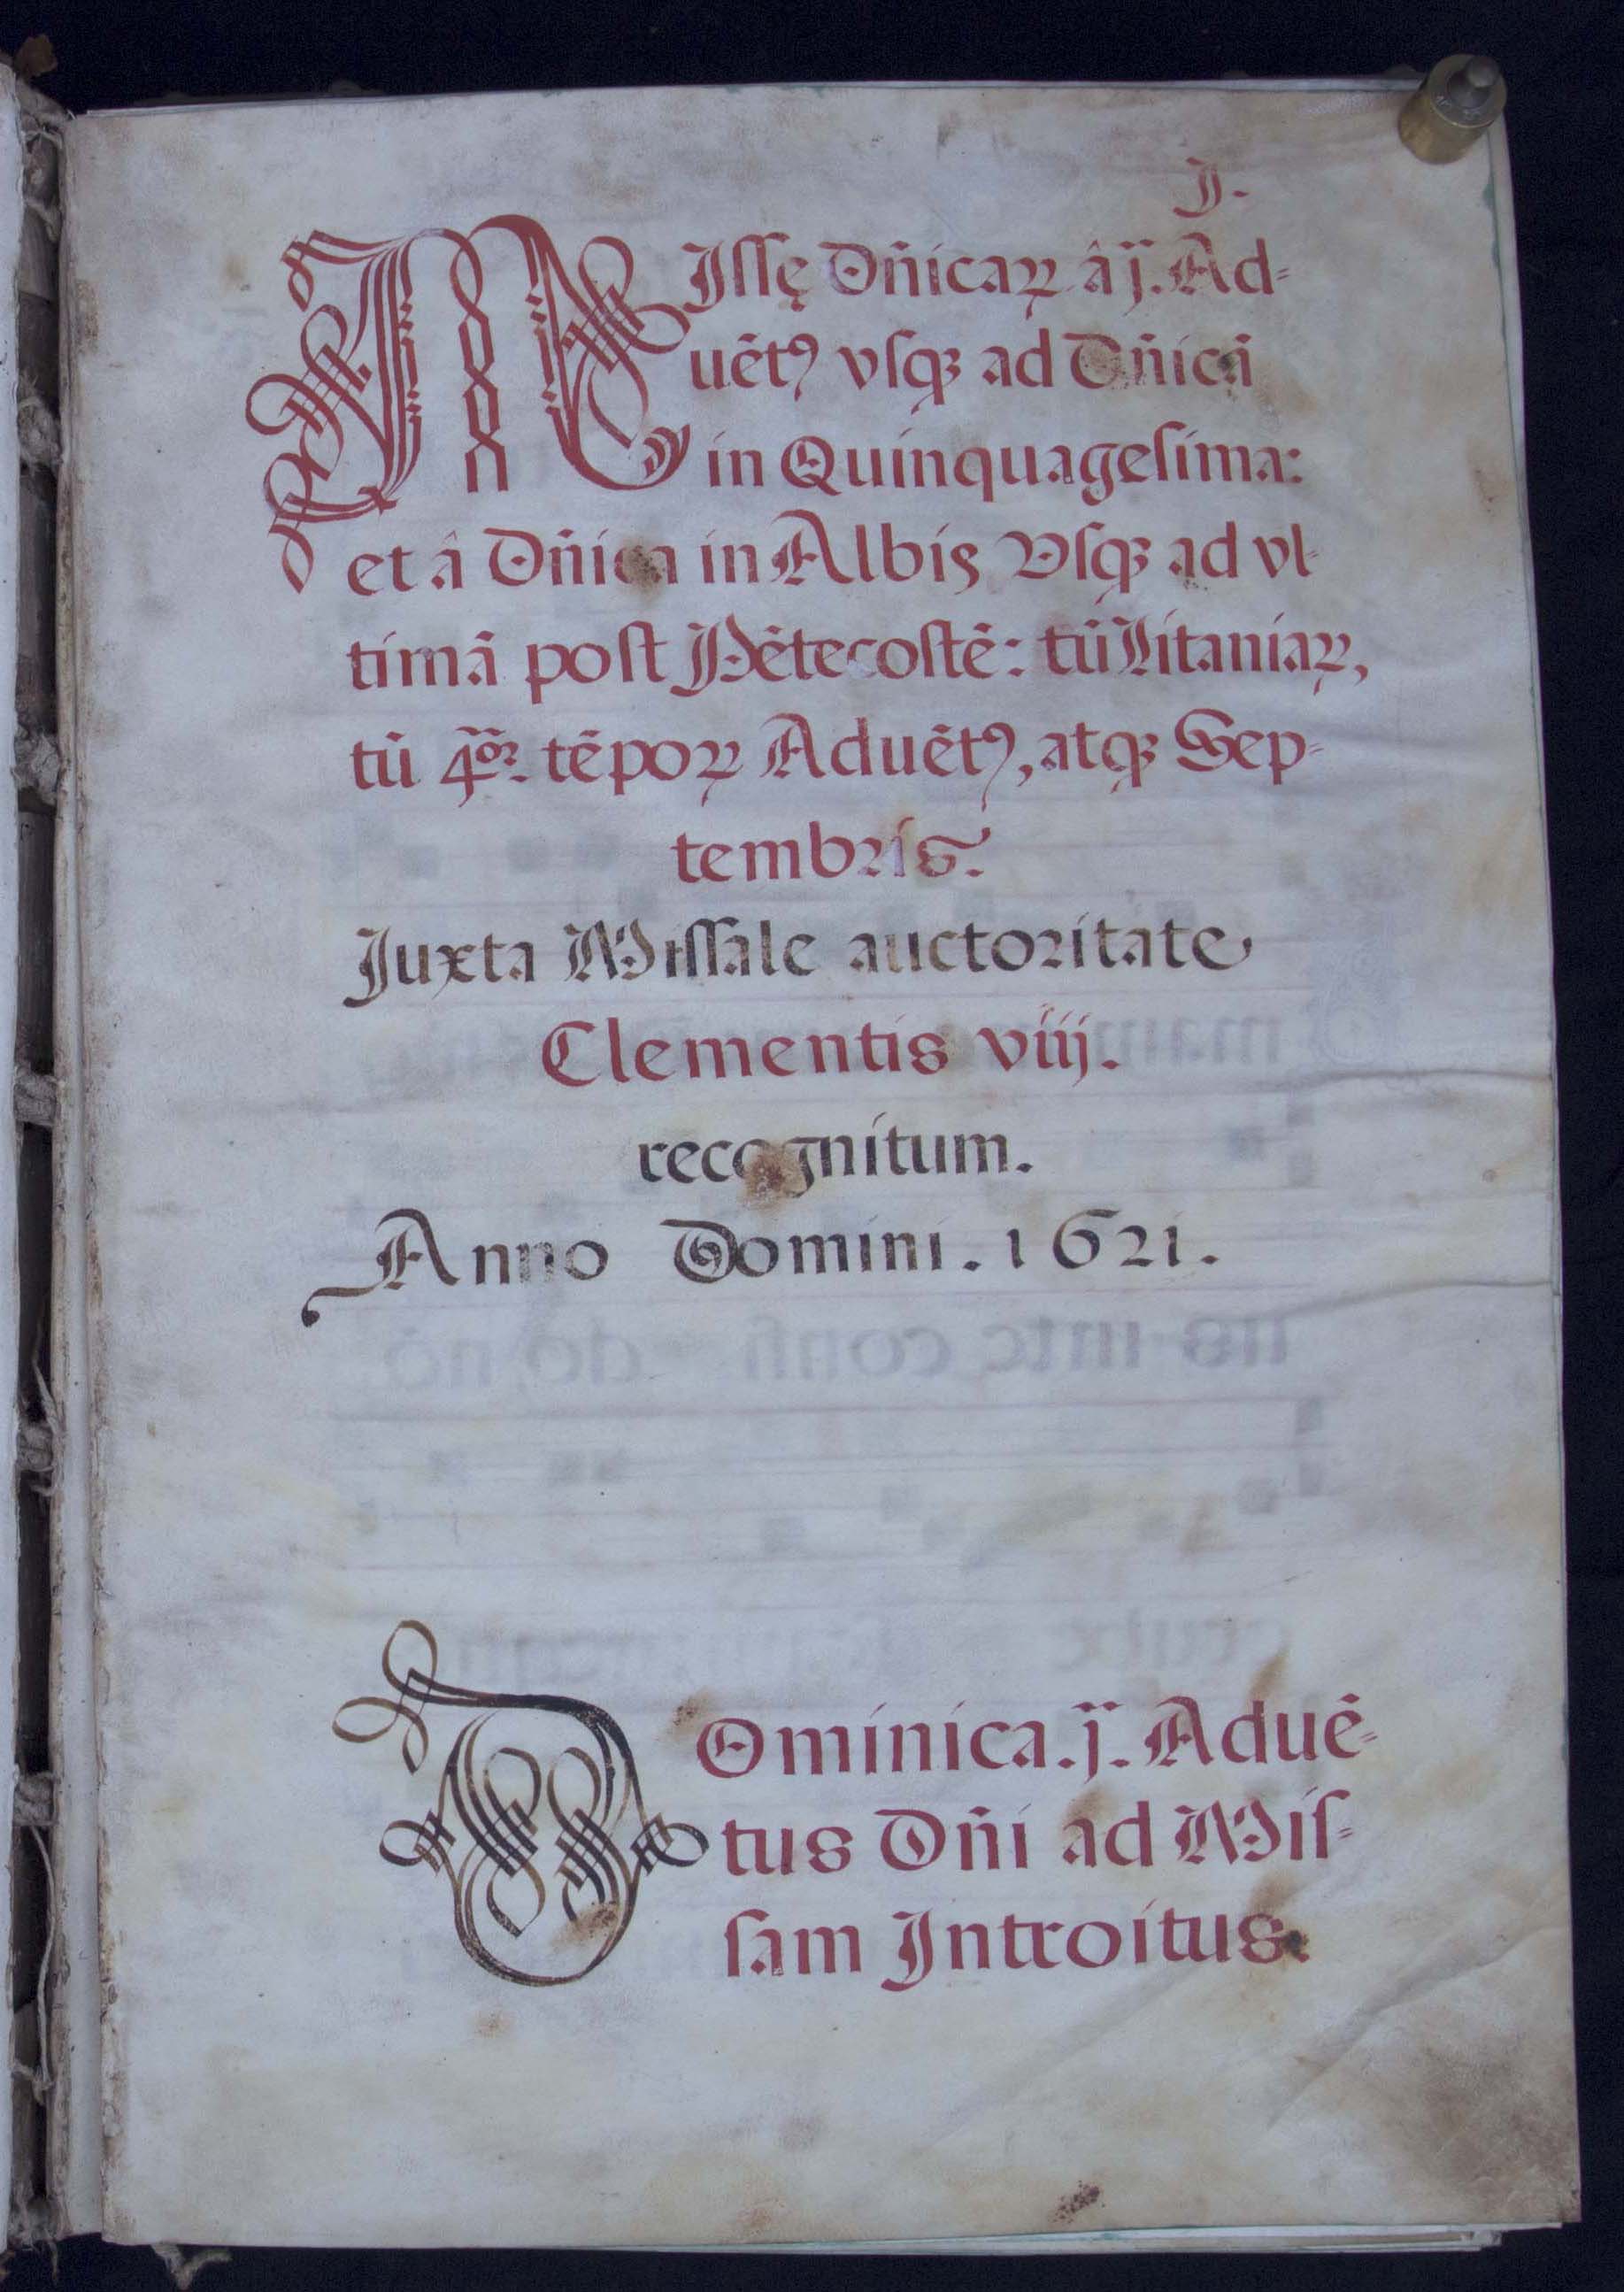 J.
MIſſę Dñicaꝝ â j̈. Ad-
uẽtꝰ vſqꝫ ad Dñicã
in Quinquageſima:
et â Dñica in Albis Vſqꝫ ad vl-
timã poſt Pẽtecoſtẽ: tũ Litaniaꝝ,
tũ 4õꝛ. tẽpoꝝ Aduẽtꝰ, atqꝫ Sep-
tembꝛis.
Juxta Miſſale auctoꝛitate
Clementis viij.
recognitum.
Anno Domini. 1621.
DOminica. j̈. Aduẽ-
tus Dñi ad Miſ-
ſam Introitus.